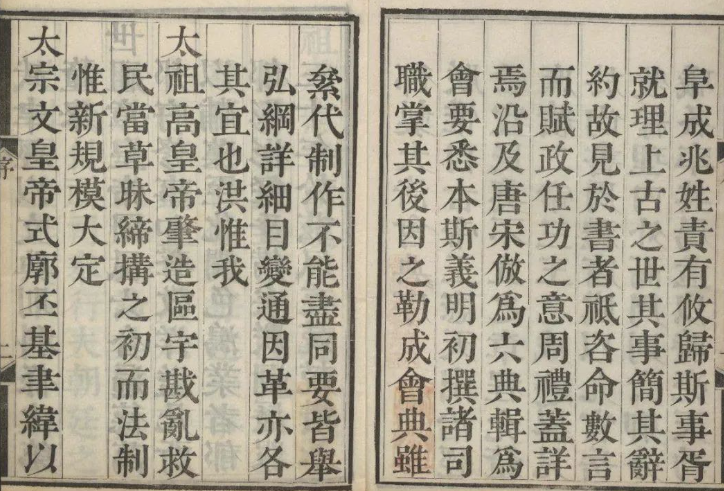 阜成兆姓責有攸歸斯事胥
就理上古之世其事簡其辭
約故見於書者祗咨命數言
而賦政任功之意周禮蓋詳
焉沿及唐宋倣爲六典輯爲
會要悉本斯義明初撰諸司
職掌其後因之勒成會典雖
絫代制作不能盡同要皆舉
弘綱詳細目變通因革亦各
其宜也洪惟我
太祖高皇帝肇造區宇戡亂救
民當草昧締搆之初而法制
惟新規模大定
太宗文皇帝式廓丕基聿緯以
序